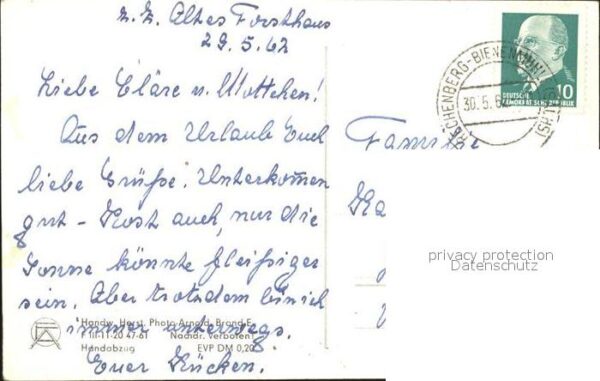 z. Z. Altes Forsthaus
29.5.62
Liebe Cläre u. Mottchen!
Aus dem Urlaub Euch
liebe Grüße. Unterkommen
gut – Kost auch, nur die
Sonne könnte fleißiger
sein. Aber trotzdem bin ich
immer unterwegs.
Euer Kücken.
Handw. Horst. Photo-Arnold, Brand-E.
F III-11-20 47-61 Nachdr. verboten!
Handabzug EVP DM 0,20
Familie
RECHENBERG-BIENENMÜHLE
30.5.6
DEUTSCHE
DEMOKRATISCHE REPUBLIK
10
privacy protection
Datenschutz